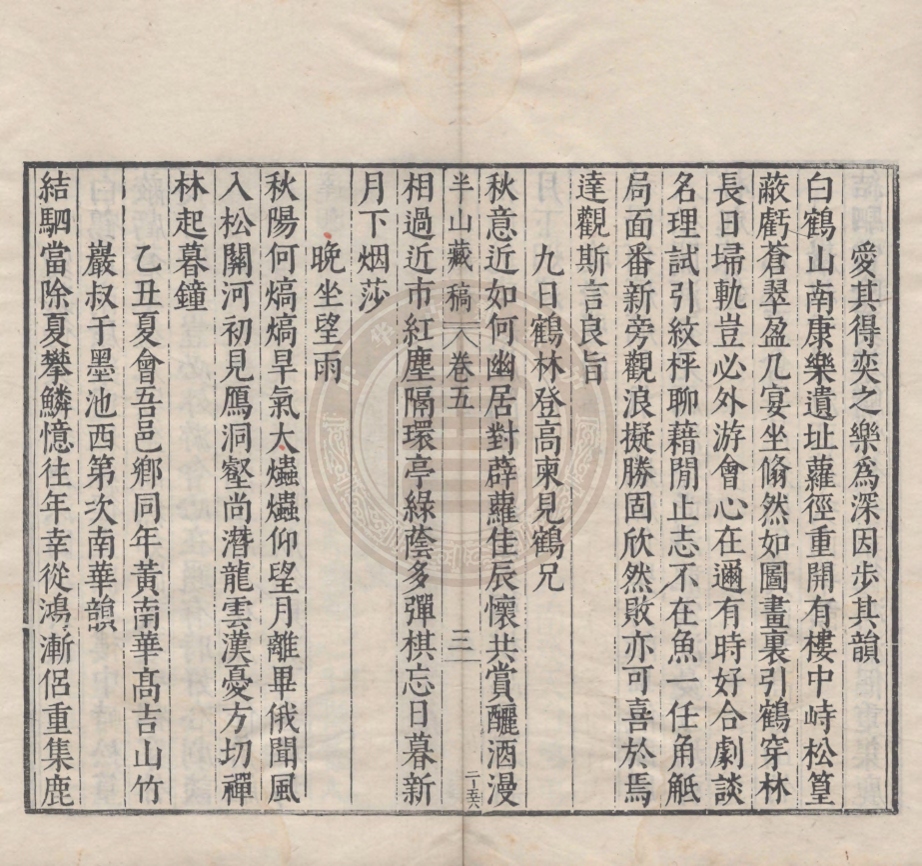 愛其得奕之樂爲深因步其韻
白鶴山南康樂遺址蘿徑重開有樓中峙松篁
蔽虧蒼翠盈几宴坐翛然如圖畫裏引鶴穿林
長日埽軌豈必外游會心在邇有時好合劇談
名理試引紋枰聊藉閒止志不在魚一任角觝
局面番新旁觀浪擬勝固欣然敗亦可喜於焉
達觀斯言良旨
九日鶴林登高柬見鶴兄
秋意近如何幽居對薜蘿佳辰懷共賞釃酒漫
半山藏稿 卷五 三 二-五六
相過近市紅塵隔環亭綠蔭多彈棋忘日暮新
月下烟莎
晚坐望雨
秋陽何熇熇旱氣大蟲蟲仰望月離畢俄聞風
入松關河初見鴈洞壑尚潛龍雲漢憂方切禪
林起暮鐘
乙丑夏會吾邑鄉同年黃南華高吉山竹
巖叔于墨池西第次南華韻
結駟當除夏攀鱗憶往年幸從鴻漸侶重集鹿